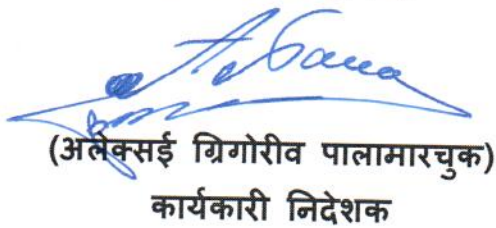 (अलेक्सई ग्रिगोरीव पालामारचुक)
कार्यकारी निदेशक